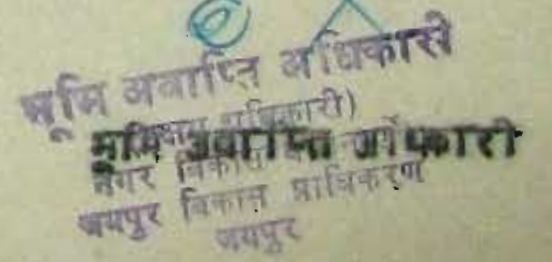 भूमि अवाप्ति अधिकारी
(सक्षम अधिकारी)
भूमि अवाप्ति अधिकारी
नगर विकास
जयपुर विकास प्राधिकरण
जयपुर